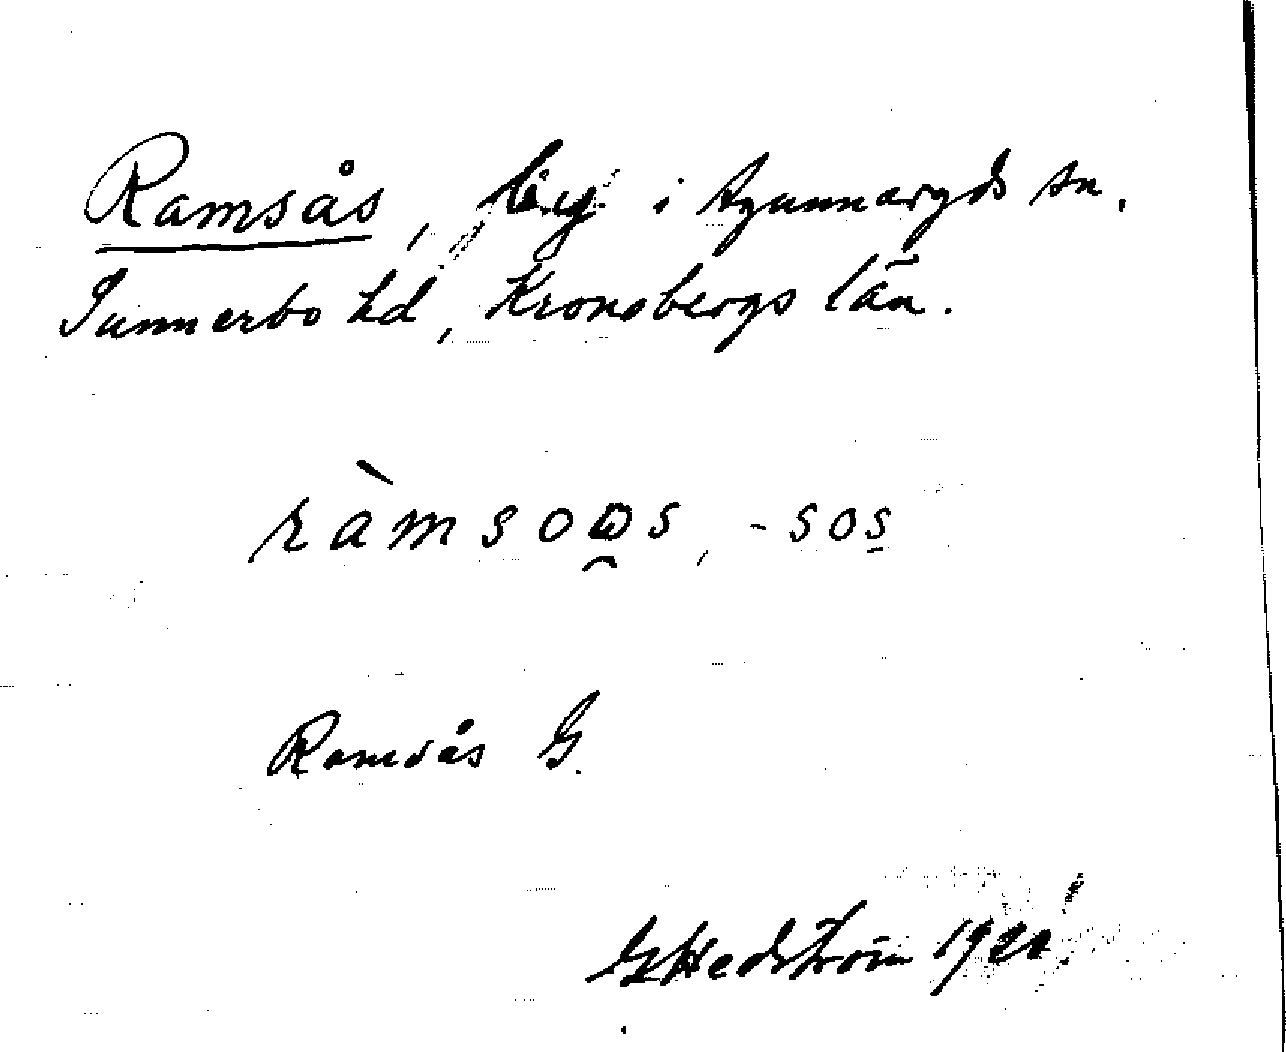 Ramsås, by i Agunnaryds sn.
Sunnerbo hd, Kronobergs län.
ràmsoɷs, -sos
Ramsås G.
G Hedström 1920